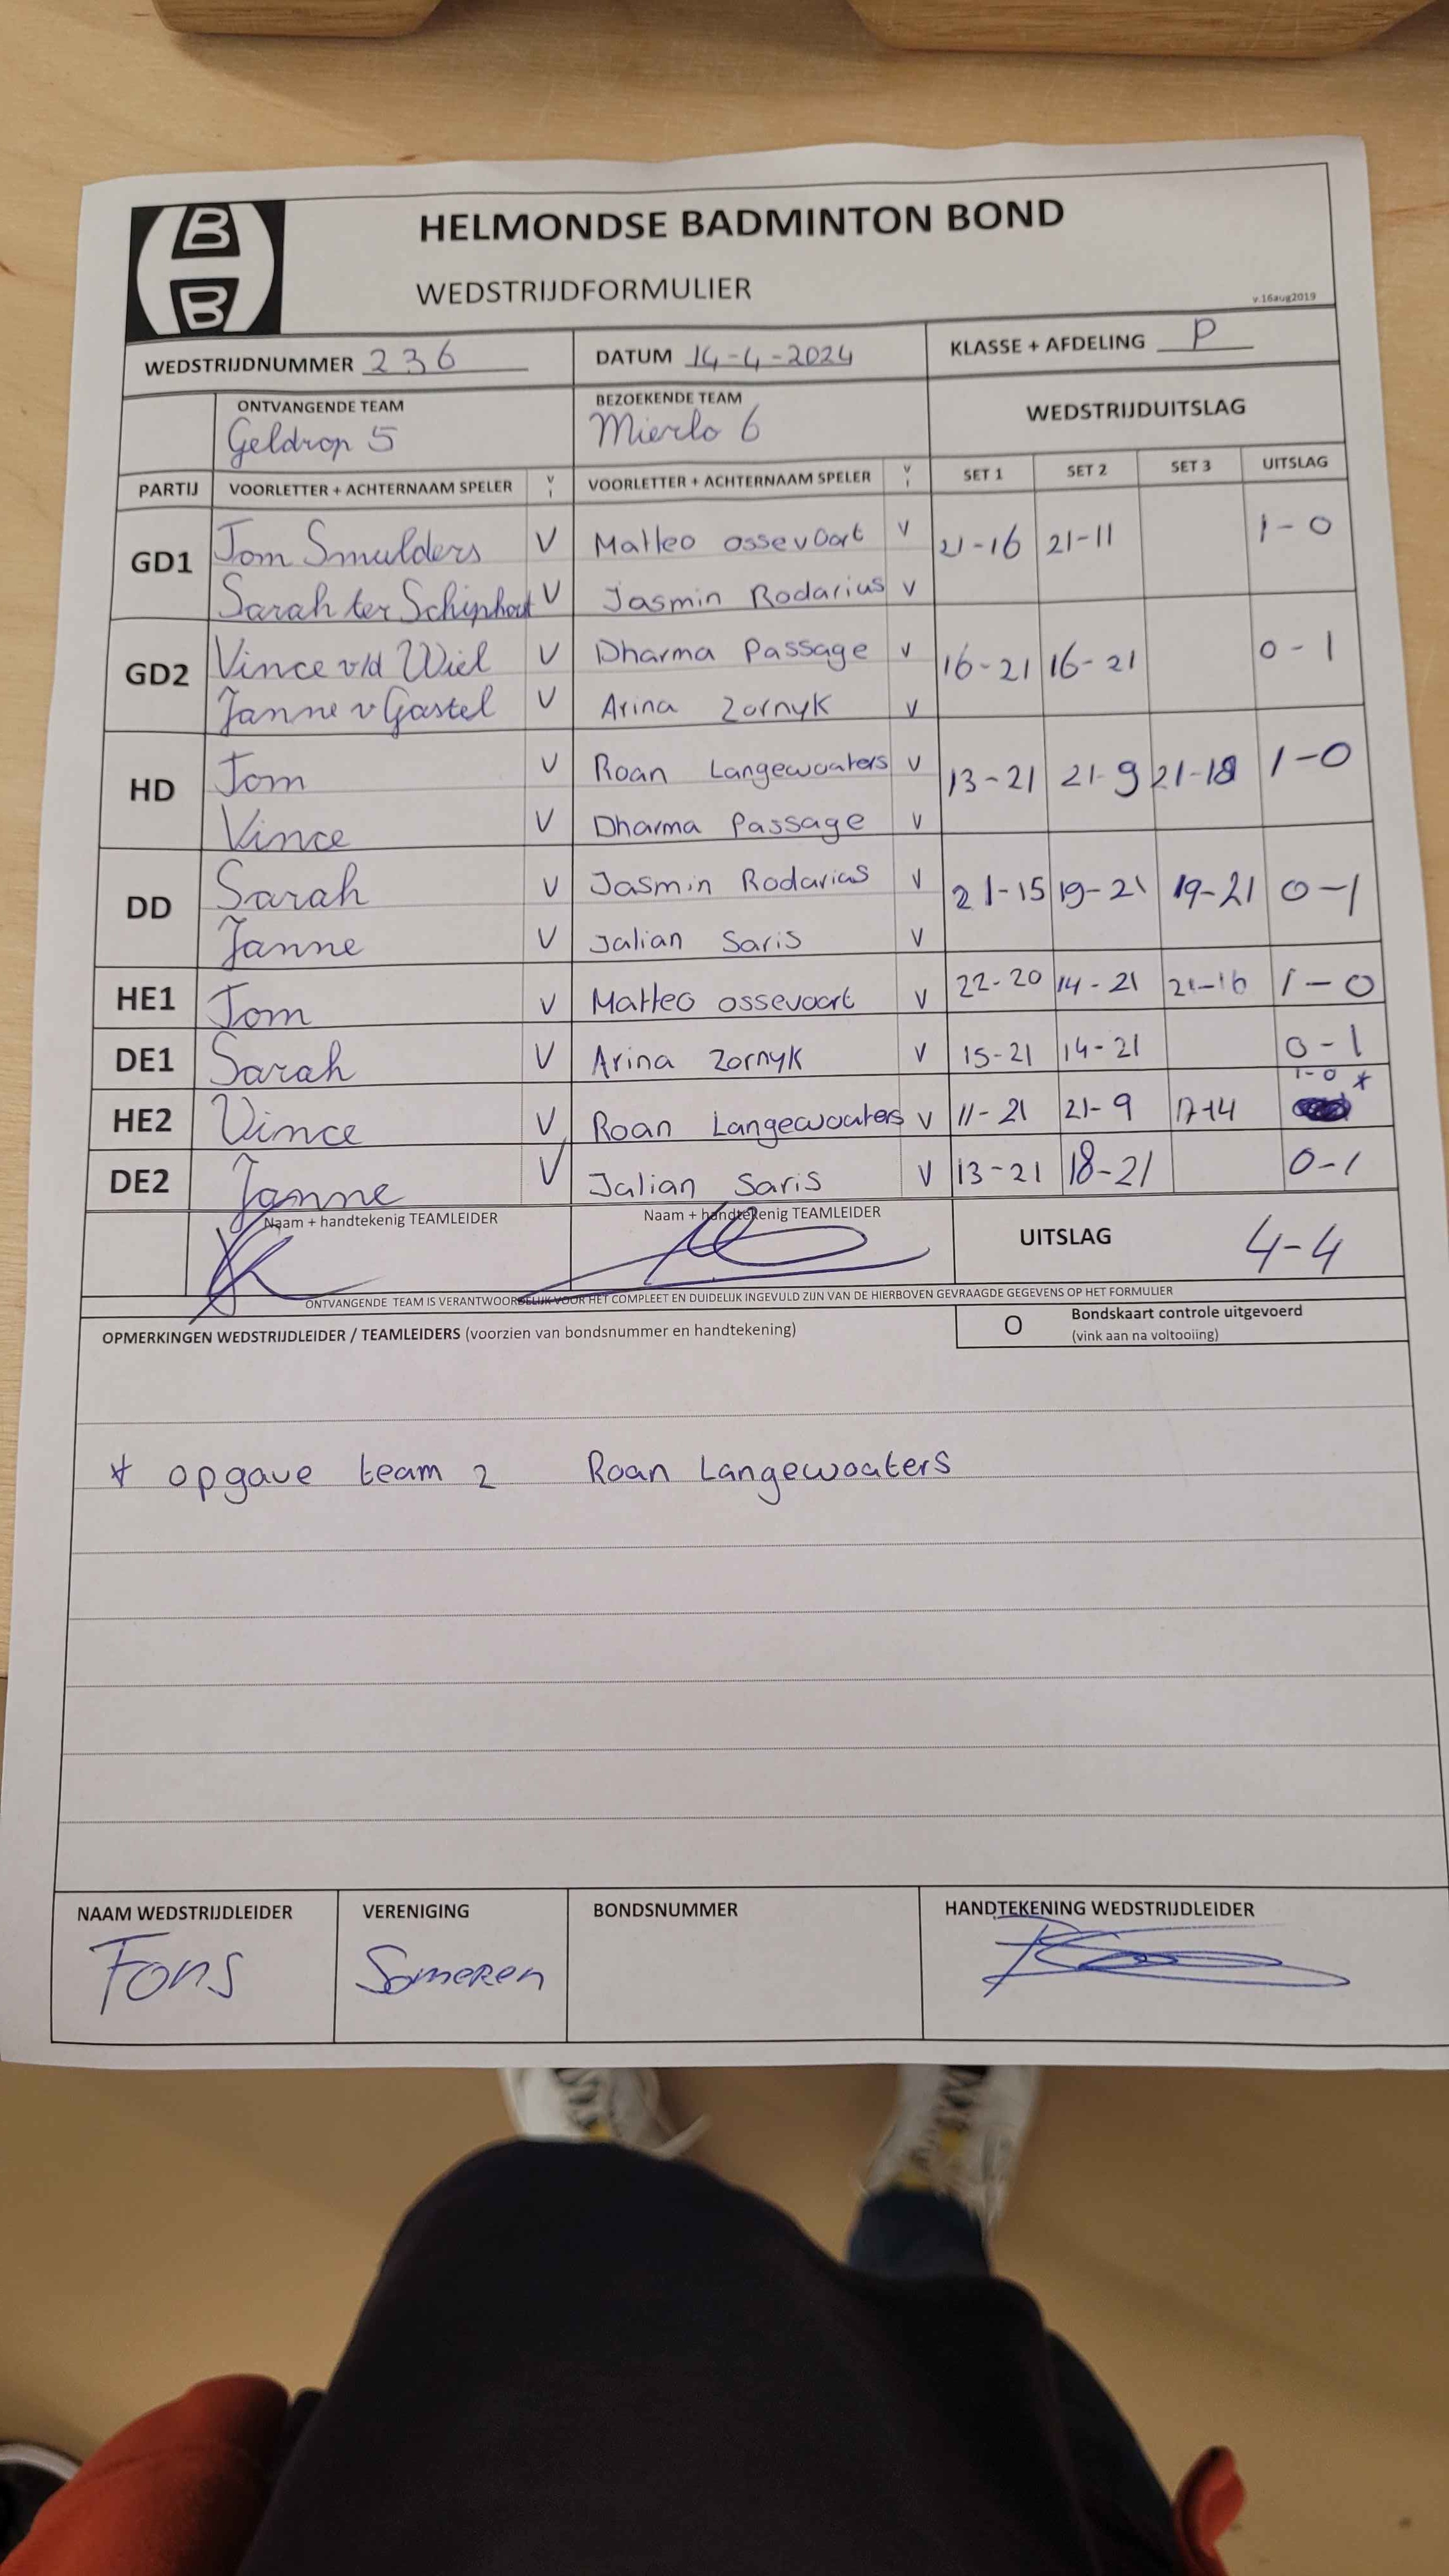 B
B
HELMONDSE BADMINTON BOND
WEDSTRIJDFORMULIER
v.16aug2019
WEDSTRIJDNUMMER 236 DATUM 14-4-2024 KLASSE + AFDELING P
ONTVANGENDE TEAM BEZOEKENDE TEAM WEDSTRIJDUITSLAG
Geldrop 5 Mierlo 6
PARTIJ VOORLETTER + ACHTERNAAM SPELER V I VOORLETTER + ACHTERNAAM SPELER V I SET 1 SET 2 SET 3 UITSLAG
GD1 Tom Smulders V Matteo ossevoort V 21-16 21-11 1-0
Sarah ter Schiphorst V Jasmin Rodarius V
GD2 Vince v/d Wiel V Dharma Passage V 16-21 16-21 0-1
Janne v Gastel V Arina Zornyk V
HD Tom V Roan Langewouters V 13-21 21-9 21-18 1-0
Vince V Dharma Passage V
DD Sarah V Jasmin Rodarius V 21-15 19-21 19-21 0-1
Janne V Jalian Saris V
HE1 Tom V Matteo ossevoort V 22-20 14-21 21-16 1-0
DE1 Sarah V Arina Zornyk V 15-21 14-21 0-1
HE2 Vince V Roan Langewouters V 11-21 21-9 17-14 1-0 *
DE2 Janne V Jalian Saris V 13-21 18-21 0-1
Naam + handtekenig TEAMLEIDER Naam + handtekenig TEAMLEIDER UITSLAG 4-4
ONTVANGENDE TEAM IS VERANTWOORDELIJK VOOR HET COMPLEET EN DUIDELIJK INGEVULD ZIJN VAN DE HIERBOVEN GEVRAAGDE GEGEVENS OP HET FORMULIER
OPMERKINGEN WEDSTRIJDLEIDER / TEAMLEIDERS (voorzien van bondsnummer en handtekening) O Bondskaart controle uitgevoerd
(vink aan na voltooiing)
* opgave team 2 Roan Langewouters
NAAM WEDSTRIJDLEIDER VERENIGING BONDSNUMMER HANDTEKENING WEDSTRIJDLEIDER
Fons Someren